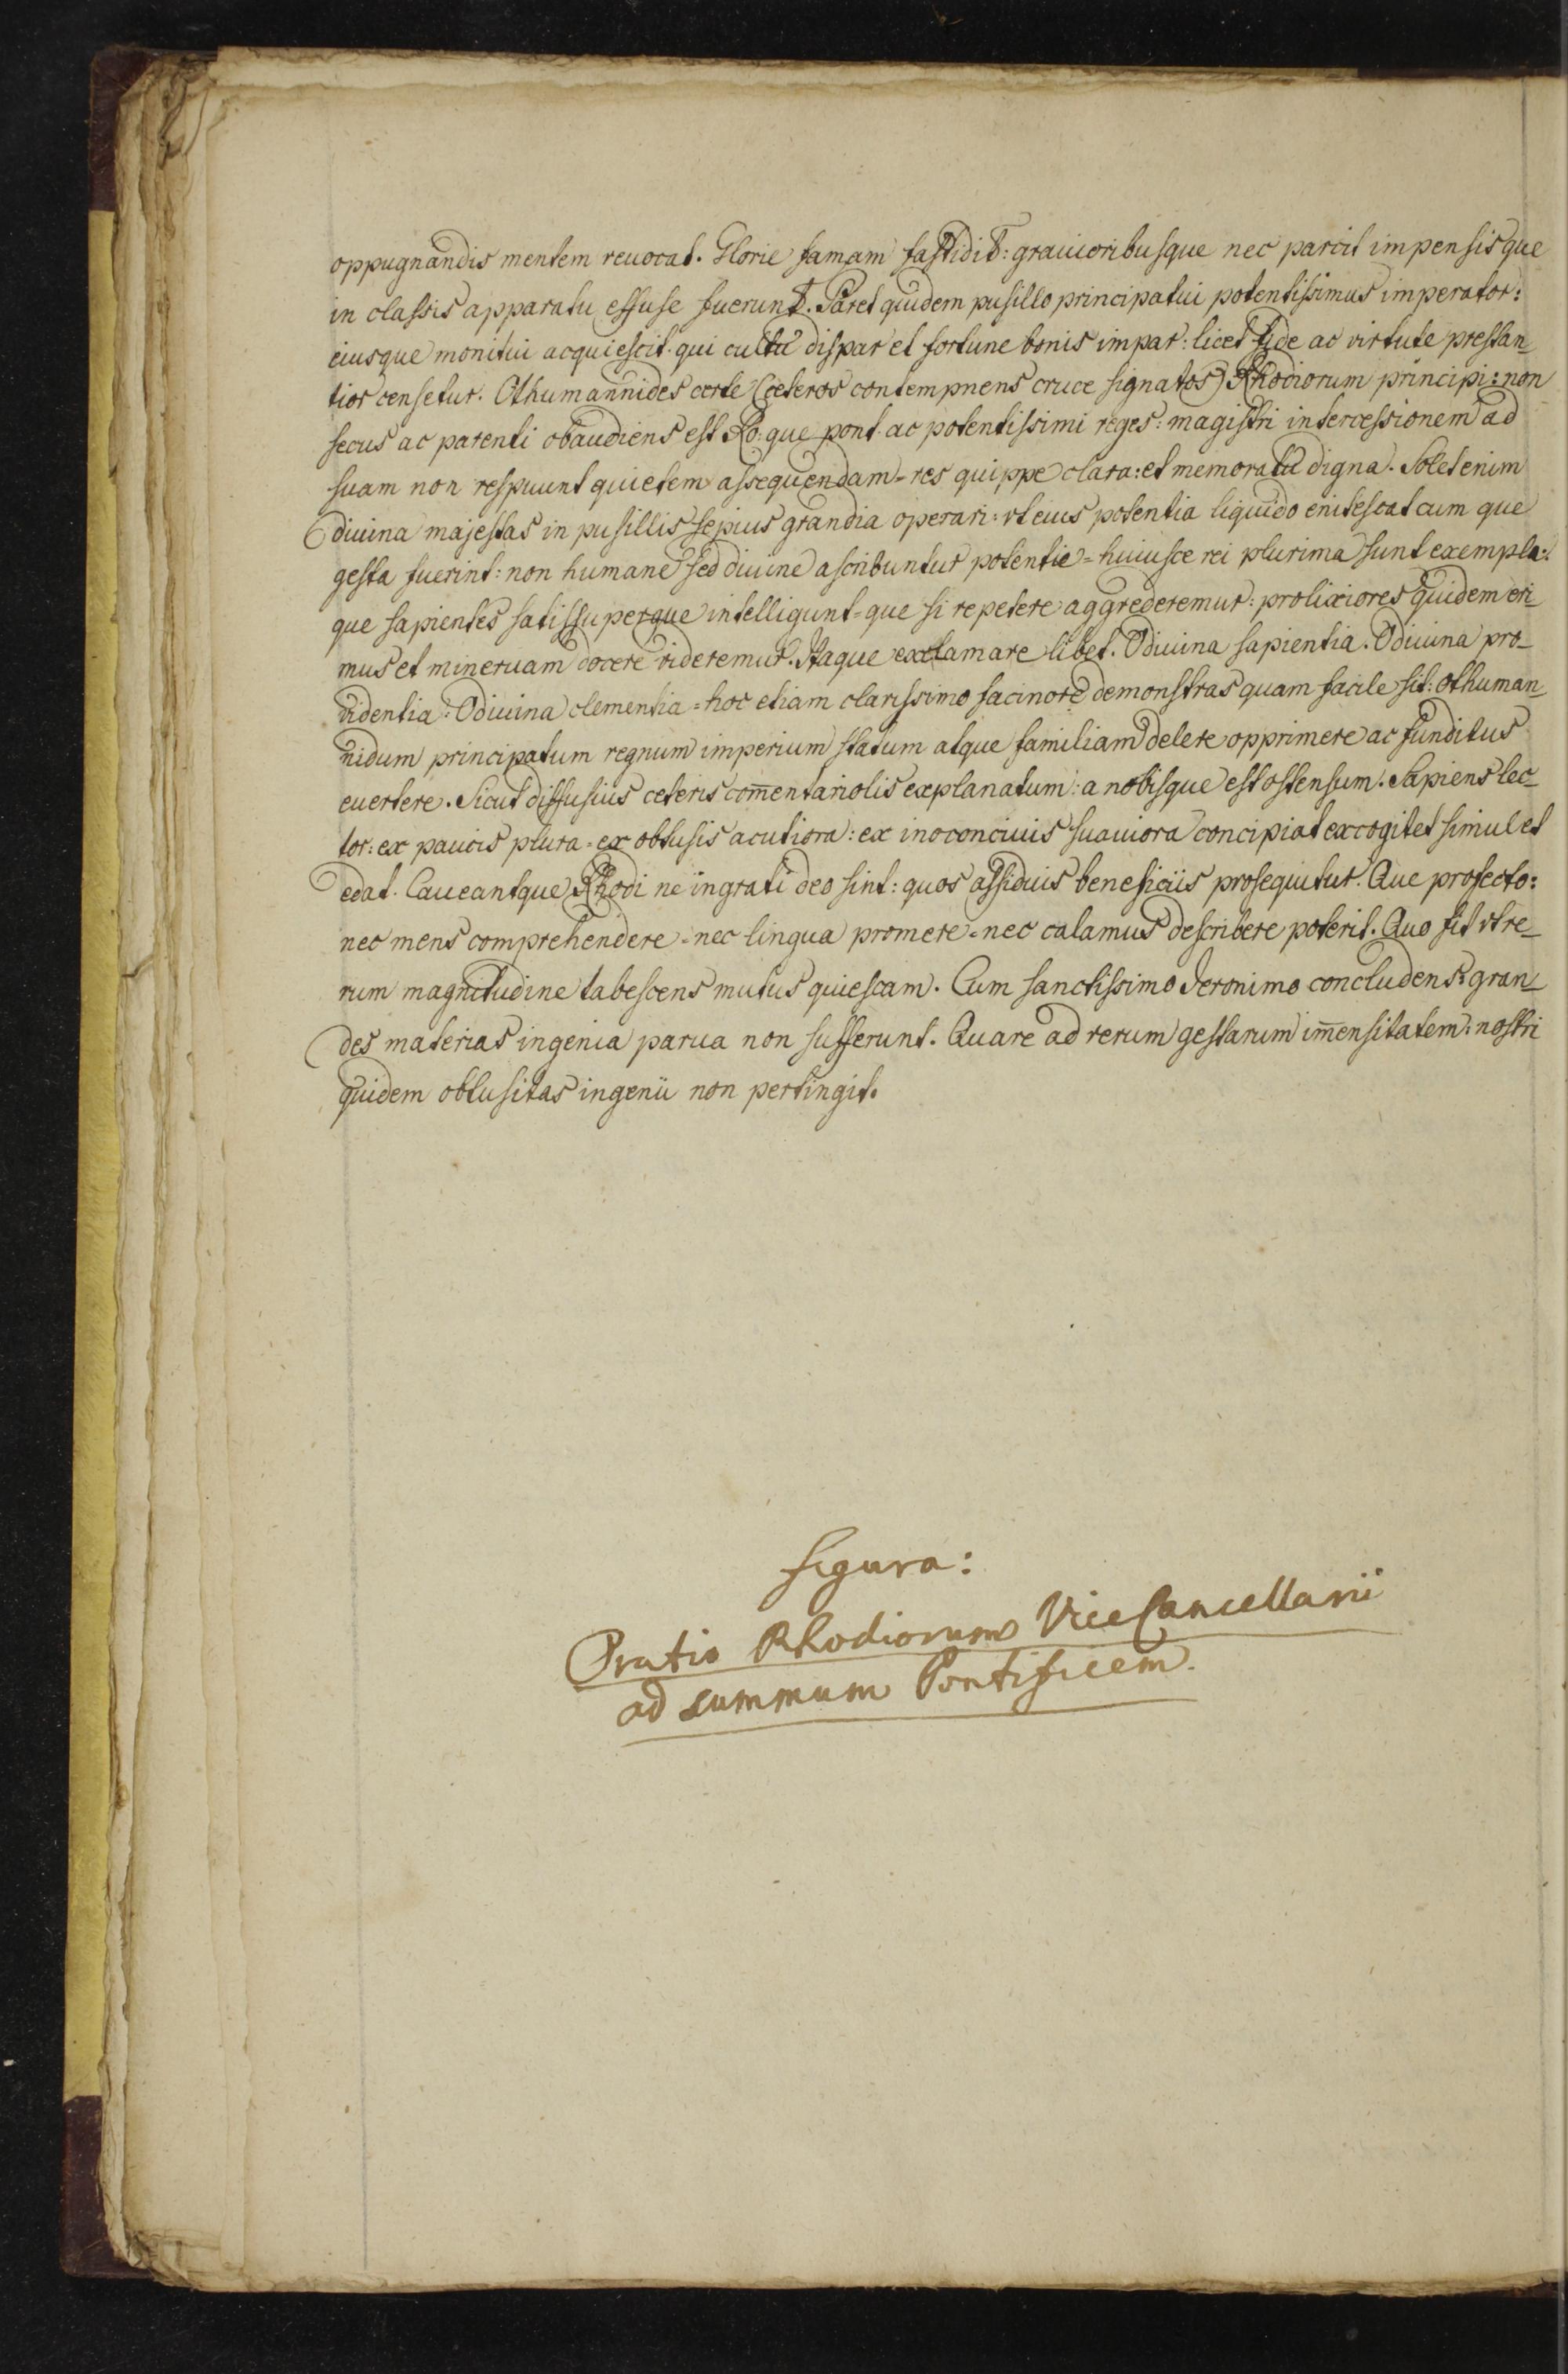 oppugnandis mentem reuocat. Glorie famam fastidit: grauioribusque nec parcit impensis que
in classis apparatu effuse fuerunt. Paret quidem pusillo principatui potentissimus imperator:
eiusque monitui acquiescit. qui cultu dispar et fortune bonis impar: licet fide ac virtute prestan_
tior censetur. Othumannides certe (ceteros contempnens cruce signatos) Rhodiorum principi: non
secus ac parenti obaudiens est Ro: que pont. ac potentissimi reges: magistri intercessionem ad
suam non respuunt quietem assequendam = res quippe clara: et memoratu digna. Solet enim
diuina majestas in pusillis sepius grandia operari: vt eius potentia liquido enitescat cum que
gesta fuerint: non humane sed diuine ascribuntur potentie = huiusce rei plurima sunt exempla:
que sapientes satissuperque intelligunt = que si repetere aggrederemur: prolixiores quidem eri_
mus et mineruam docere videremur. Itaque exclamare libet. O diuina sapientia. O diuina pro_
videntia. O diuina clementia = hoc etiam clarissimo facinore demonstras quam facile sit: othuman_
nidum principatum regnum imperium statum atque familiam delere opprimere ac funditus
euertere. Sicut diffusius ceteris com̄entariolis explanatum: a nobisque est ostensum. Sapiens lec_
tor: ex paucis plura = ex obtusis acutiora: ex inoconciuis suauiora concipiat excogitet simul et
edat. Caueantque Rhodi ne ingrati deo sint: quos assiduis beneficiis prosequitur. Que profecto:
nec mens comprehendere = nec lingua promere = nec calamus describere poterit. Quo fit vt re_
rum magnitudine tabescens mutus quiescam. Cum sanctissimo Jeronimo concludens: gran_
des materias ingenia parua non sufferunt. Quare ad rerum gestarum im̄ensitatem: nostri
quidem obtusitas ingenii non pertingit.
figura:
Oratio Rhodiorum ViceCancellarii
ad summum Pontificem.